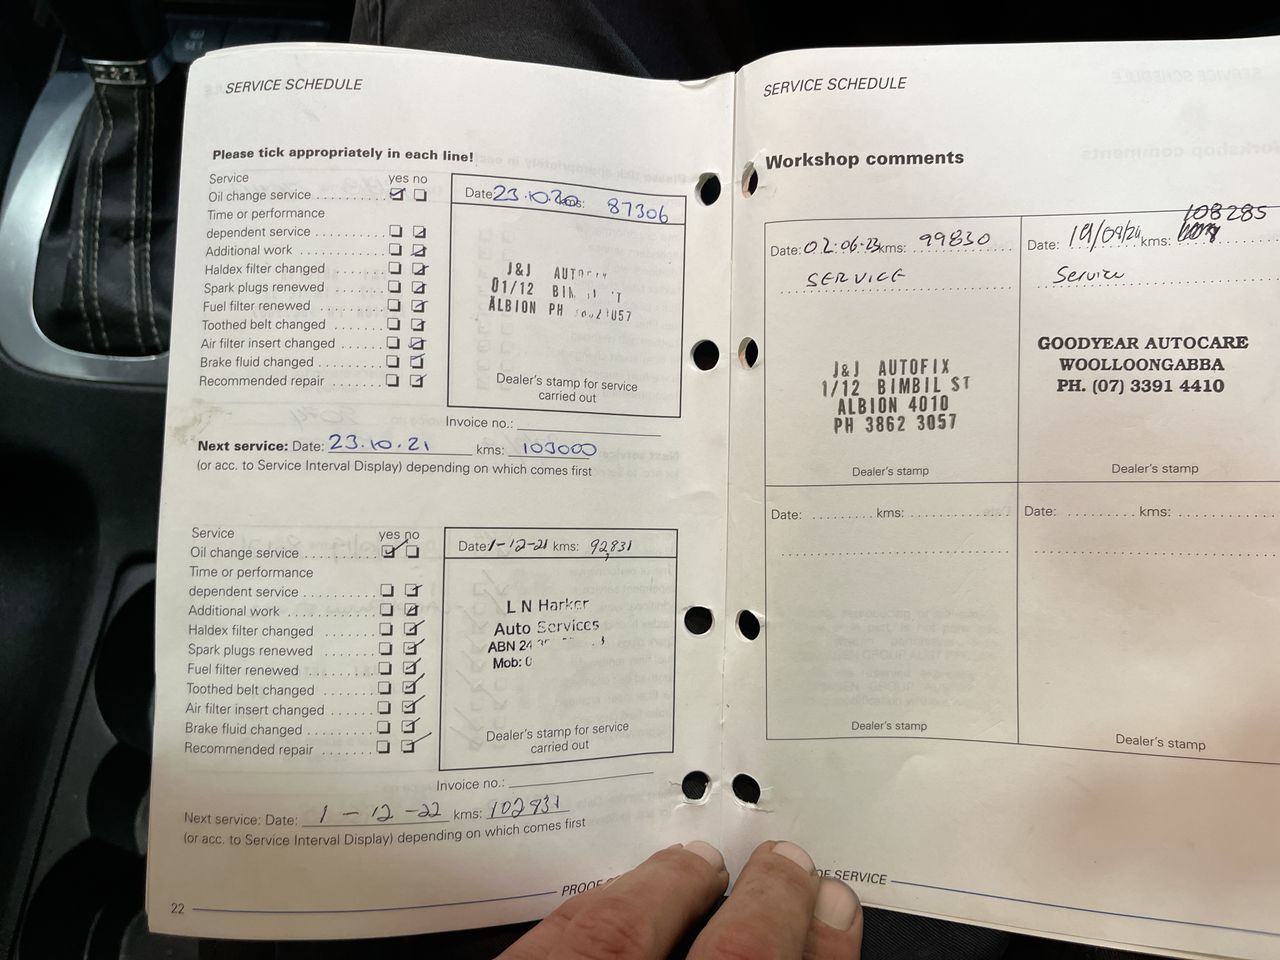 SERVICE SCHEDULE
Please tick appropriately in each line!
Service yes no
Oil change service
Time or performance
dependent service
Additional work
Haldex filter changed
Spark plugs renewed
Fuel filter renewed
Toothed belt changed
Air filter insert changed
Brake fluid changed
Recommended repair
Date: 23.10.20 kms: 87306
J&J
01/12
ALBION PH
Dealer's stamp for service
carried out
Invoice no.:
Next service: Date: 23.10.21 kms: 103000
(or acc. to Service Interval Display) depending on which comes first
Service yes no
Oil change service
Time or performance
dependent service
Additional work
Haldex filter changed
Spark plugs renewed
Fuel filter renewed
Toothed belt changed
Air filter insert changed
Brake fluid changed
Recommended repair
Date: 1-12-21 kms: 92,831
L N Harker
Auto Services
ABN 24
Mob:
Dealer's stamp for service
carried out
Invoice no.:
Next service: Date: 1-12-22 kms: 102931
(or acc. to Service Interval Display) depending on which comes first
PROOF
22
SERVICE SCHEDULE
Workshop comments
Date: 02.06.23 kms: 99830
SERVICE
J&J AUTOFIX
1/12 BIMBIL ST
ALBION 4010
PH 3862 3057
Dealer's stamp
108285
Date: 19/09/24 kms:
Service
GOODYEAR AUTOCARE
WOOLLOONGABBA
PH. (07) 3391 4410
Dealer's stamp
Date: kms:
Dealer's stamp
Date: kms:
Dealer's stamp
OF SERVICE